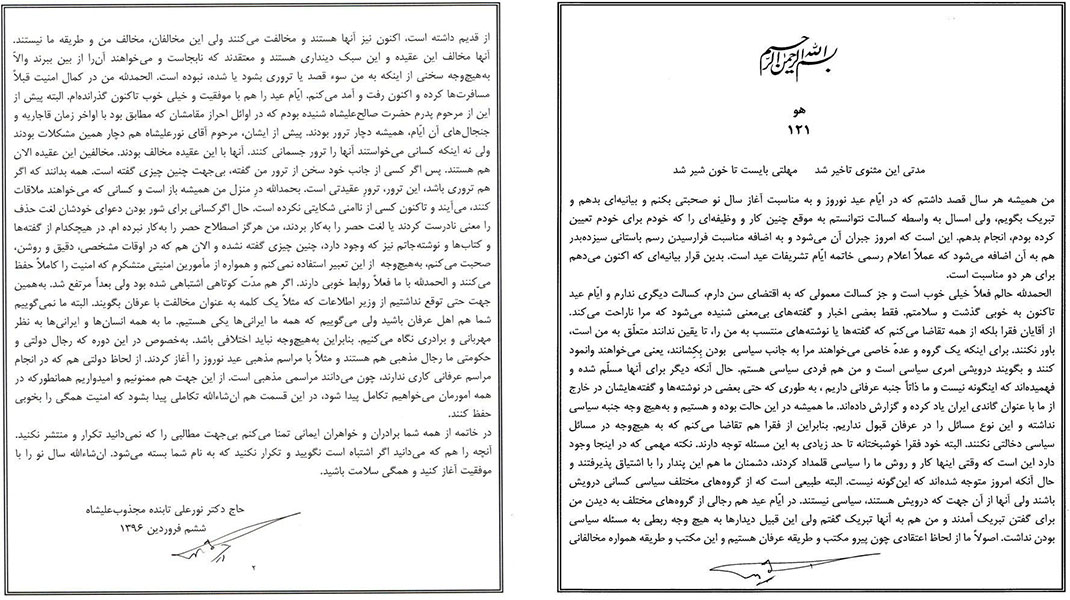 بسم الله الرحمن الرحیم
هو
۱۲۱
مدتی این مثنوی تاخیر شد مهلتی بایست تا خون شیر شد
من همیشه هر سال قصد داشتم که در ایّام عید نوروز و به مناسبت آغاز سال نو صحبتی بکنم و بیانیه‌ای بدهم و
تبریک بگویم، ولی امسال به واسطه کسالت نتوانستم به موقع چنین کار و وظیفه‌ای را که خودم برای خودم تعیین
کرده بودم، انجام بدهم. این است که امروز جبران آن می‌شود و به اضافه مناسبت فرارسیدن رسم باستانی سیزده‌بدر
هم به آن اضافه می‌شود که عملاً اعلام رسمی خاتمه ایّام تشریفات عید است. بدین قرار بیانیه‌ای که اکنون می‌دهم
برای هر دو مناسبت است.
الحمدلله حالم فعلاً خیلی خوب است و جز کسالت معمولی که به اقتضای سن دارم، کسالت دیگری ندارم و ایّام عید
تاکنون به خوبی گذشت و سلامتم. فقط بعضی اخبار و گفته‌های بی‌معنی شنیده می‌شود که مرا ناراحت می‌کند.
از آقایان فقرا بلکه از همه تقاضا می‌کنم که گفته‌ها یا نوشته‌های منتسب به من را، تا یقین ندانند متعلّق به من است،
باور نکنند. برای اینکه یک گروه و عدّه خاصی می‌خواهند مرا به جانب سیاسی بودن بِکِشانند، یعنی می‌خواهند وانمود
کنند و بگویند درویشی امری سیاسی است و من هم فردی سیاسی هستم. حال آنکه دیگر برای آنها مسلّم شده و
فهمیده‌اند که اینگونه نیست و ما ذاتاً جنبه عرفانی داریم ، به طوری که حتی بعضی در نوشته‌ها و گفته‌هایشان در خارج
از ما با عنوان گاندی ایران یاد کرده و گزارش داده‌اند. ما همیشه در این حالت بوده و هستیم و به‌هیچ وجه جنبه سیاسی
نداشته و این نوع مسائل را در عرفان قبول نداریم. بنابراین از فقرا هم تقاضا می‌کنم که به هیچ‌وجه در مسائل
سیاسی دخالتی نکنند. البته خود فقرا خوشبختانه تا حد زیادی به این مسئله توجه دارند. نکته مهمی که در اینجا وجود
دارد این است که وقتی اینها کار و روش ما را سیاسی قلمداد کردند، دشمنان ما هم این پندار را با اشتیاق پذیرفتند و
حال آنکه امروز متوجه شده‌اند که این‌گونه نیست. البته طبیعی است که از گروه‌های مختلف سیاسی کسانی درویش
باشند ولی آنها از آن جهت که درویش هستند، سیاسی نیستند. در ایّام عید هم رجالی از گروه‌های مختلف به دیدن من
برای گفتن تبریک آمدند و من هم به آنها تبریک گفتم ولی این قبیل دیدارها به هیچ وجه ربطی به مسئله سیاسی
بودن نداشت. اصولاً ما از لحاظ اعتقادی چون پیرو مکتب و طریقه عرفان هستیم و این مکتب و طریقه همواره مخالفانی
از قدیم داشته است، اکنون نیز آنها هستند و مخالفت می‌کنند ولی این مخالفان، مخالف من و طریقه ما نیستند.
آنها مخالف این عقیده و این سبک دینداری هستند و معتقدند که نابجاست و می‌خواهند آن‌را از بین ببرند والاّ
به‌هیچ‌وجه سخنی از اینکه به من سوء قصد یا تروری بشود یا شده، نبوده است. الحمدلله من در کمال امنیت قبلاً
مسافرت‌ها کرده و اکنون رفت و آمد می‌کنم. ایّام عید را هم با موفقیت و خیلی خوب تاکنون گذرانده‌ام. البته پیش از
این از مرحوم پدرم حضرت صالح‌علیشاه شنیده بودم که در اوائل احراز مقامشان که مطابق بود با اواخر زمان قاجاریه و
جنجال‌های آن ایّام، همیشه دچار ترور بودند. پیش از ایشان، مرحوم آقای نورعلیشاه هم دچار همین مشکلات بودند
ولی نه اینکه کسانی می‌خواستند آنها را ترور جسمانی کنند. آنها با این عقیده مخالف بودند. مخالفین این عقیده الان
هم هستند. پس اگر کسی از جانب خود سخن از ترور من گفته، بی‌جهت چنین چیزی گفته است. همه بدانند که اگر
هم تروری باشد، این ترور، ترورِ عقیدتی است. بحمدالله درِ منزل من همیشه باز است و کسانی که می‌خواهند ملاقات
کنند، می‌آیند و تاکنون کسی از ناامنی شکایتی نکرده است. حال اگرکسانی برای شور بودن دعوای خودشان لغت حذف
را معنی نادرست کردند یا لغت حصر را به‌کار بردند، من هرگز اصطلاح حصر را به‌کار نبرده ام. در هیچکدام از گفته‌ها
و کتاب‌ها و نوشته‌جاتم نیز که وجود دارد، چنین چیزی گفته نشده و الان هم که در اوقات مشخصی، دقیق و روشن،
صحبت می‌کنم، به‌هیچ‌وجه از این تعبیر استفاده نمی‌کنم و همواره از مأمورین امنیتی متشکرم که امنیت را کاملاً حفظ
می‌کنند و الحمدلله با ما فعلاً روابط خوبی دارند. اگر هم مدّت کوتاهی اشتباهی شده بود ولی بعداً مرتفع شد. به‌همین
جهت حتی توقع نداشتیم از وزیر اطلاعات که مثلاً یک کلمه به عنوان مخالفت با عرفان بگویند. البته ما نمی‌گوییم
شما هم اهل عرفان باشید ولی می‌گوییم که همه ما ایرانی‌ها یکی هستیم. ما به همه انسان‌ها و ایرانی‌ها به نظر
مهربانی و برادری نگاه می‌کنیم. بنابراین به‌هیچ‌وجه نباید اختلافی باشد. به‌خصوص در این دوره که رجال دولتی و
حکومتی ما رجال مذهبی هم هستند و مثلاً با مراسم مذهبی عید نوروز را آغاز کردند. از لحاظ دولتی هم که در انجام
مراسم عرفانی کاری ندارند، چون می‌دانند مراسمی مذهبی است. از این جهت هم ممنونیم و امیدواریم همانطورکه در
همه امورمان می‌خواهیم تکامل پیدا شود، در این قسمت هم ان‌شاءالله تکاملی پیدا بشود که امنیت همگی را بخوبی
حفظ کنند.
در خاتمه از همه شما برادران و خواهران ایمانی تمنا می‌کنم بی‌جهت مطالبی را که نمی‌دانید تکرار و منتشر نکنید.
آنچه را هم که می‌دانید اگر اشتباه است نگویید و تکرار نکنید که به نام شما بسته می‌شود. ان‌شاءالله سال نو را با
موفقیت آغاز کنید و همگی سلامت باشید.
حاج دکتر نورعلی تابنده مجذوب‌علیشاه
ششم فروردین ۱۳۹۶
۲